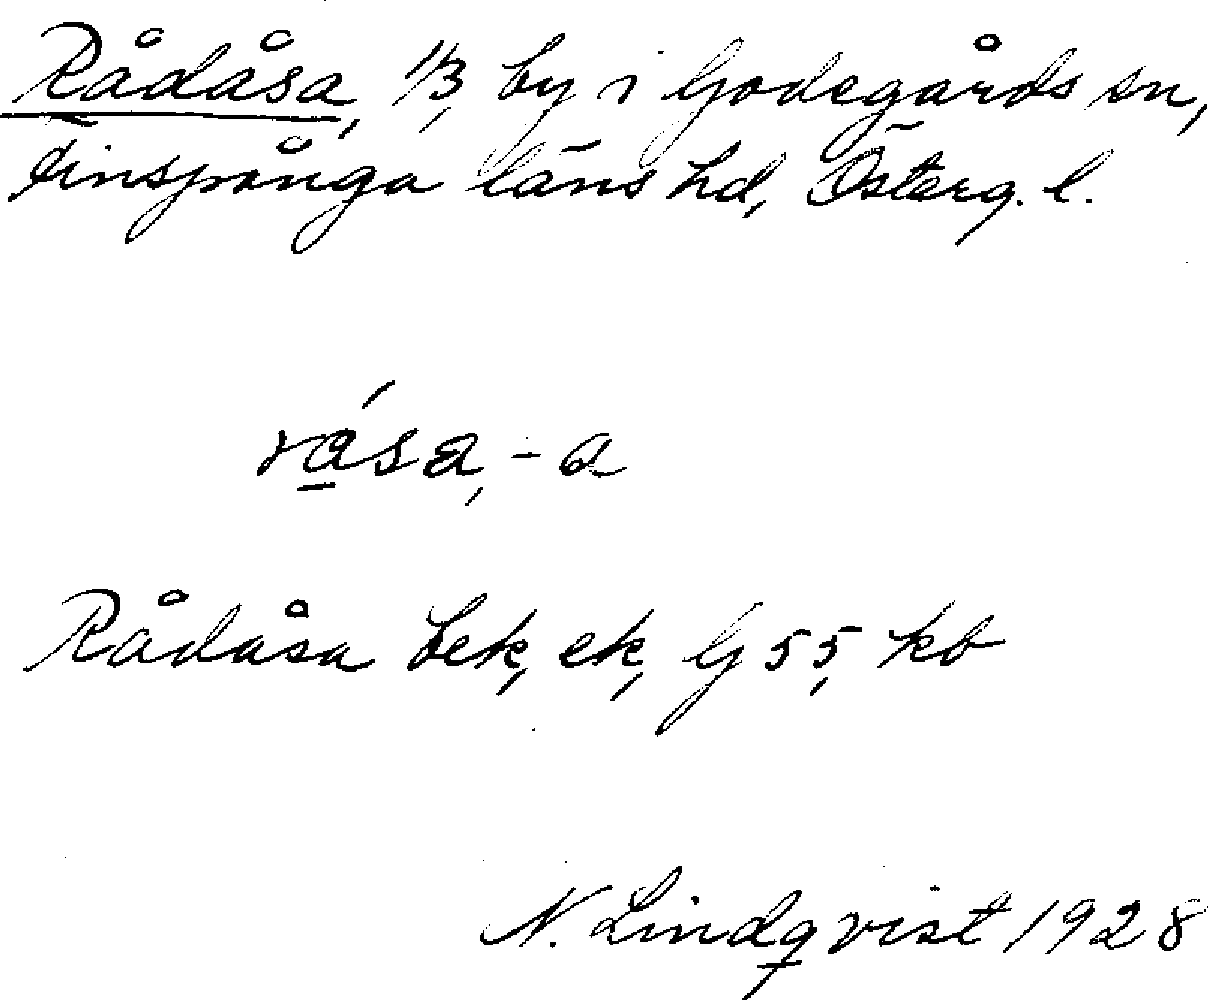 Rådåsa, 1/3, by i Godegårds sn,
Finspånga läns hd, Österg. l.
råsa, -a
Rådåsa bek, ek, G 55, kb
N. Lindqvist 1928